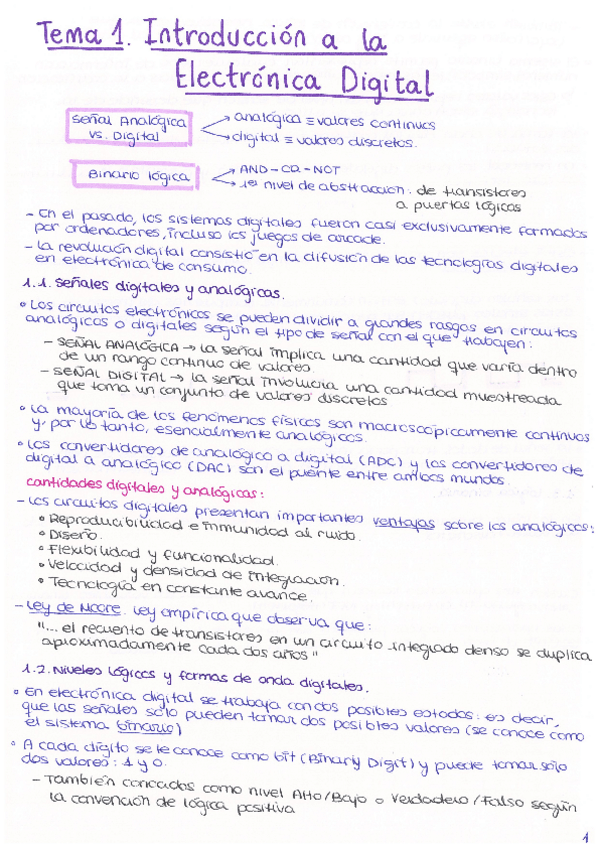 Tema 1. Introducción a la
Electrónica Digital
Señal Analógica
vs. Digital
analógica ≡ valores continuos
digital ≡ valores discretos.
Binario lógica
AND-OR-NOT
1er nivel de abstracción: de transistores
a puertas lógicas
- En el pasado, los sistemas digitales fueron casi exclusivamente formados
por ordenadores, incluso los juegos de arcade.
- La revolución digital consistió en la difusión de las tecnologías digitales
en electrónica de consumo.
1.1. Señales digitales y analógicas.
• Los circuitos electrónicos se pueden dividir a grandes rasgos en circuitos
analógicos o digitales según el tipo de señal con el que trabajen:
- SEÑAL ANALÓGICA → la señal implica una cantidad que varía dentro
de un rango continuo de valores.
- SEÑAL DIGITAL → la señal involucra una cantidad muestreada
que toma un conjunto de valores discretos
• La mayoría de los fenómenos físicos son macroscópicamente continuos
y, por lo tanto, esencialmente analógicos.
• Los convertidores de analógico a digital (ADC) y los convertidores de
digital a analógico (DAC) son el puente entre ambos mundos.
Cantidades digitales y analógicas:
- Los circuitos digitales presentan importantes ventajas sobre los analógicos:
• Reproducibilidad e inmunidad al ruido.
• Diseño.
• Flexibilidad y funcionalidad.
• Velocidad y densidad de integración.
• Tecnología en constante avance.
- Ley de Moore. Ley empírica que observa que:
"... el recuento de transistores en un circuito integrado denso se duplica
aproximadamente cada dos años"
1.2. Niveles lógicos y formas de onda digitales.
• En electrónica digital se trabaja con dos posibles estados: es decir,
que las señales sólo pueden tomar dos posibles valores (se conoce como
el sistema binario)
• A cada dígito se le conoce como bit (Binary Digit) y puede tomar sólo
dos valores: 1 y 0.
- También conocados como nivel Alto/Bajo o Verdadero/Falso según
la convención de lógica positiva
1